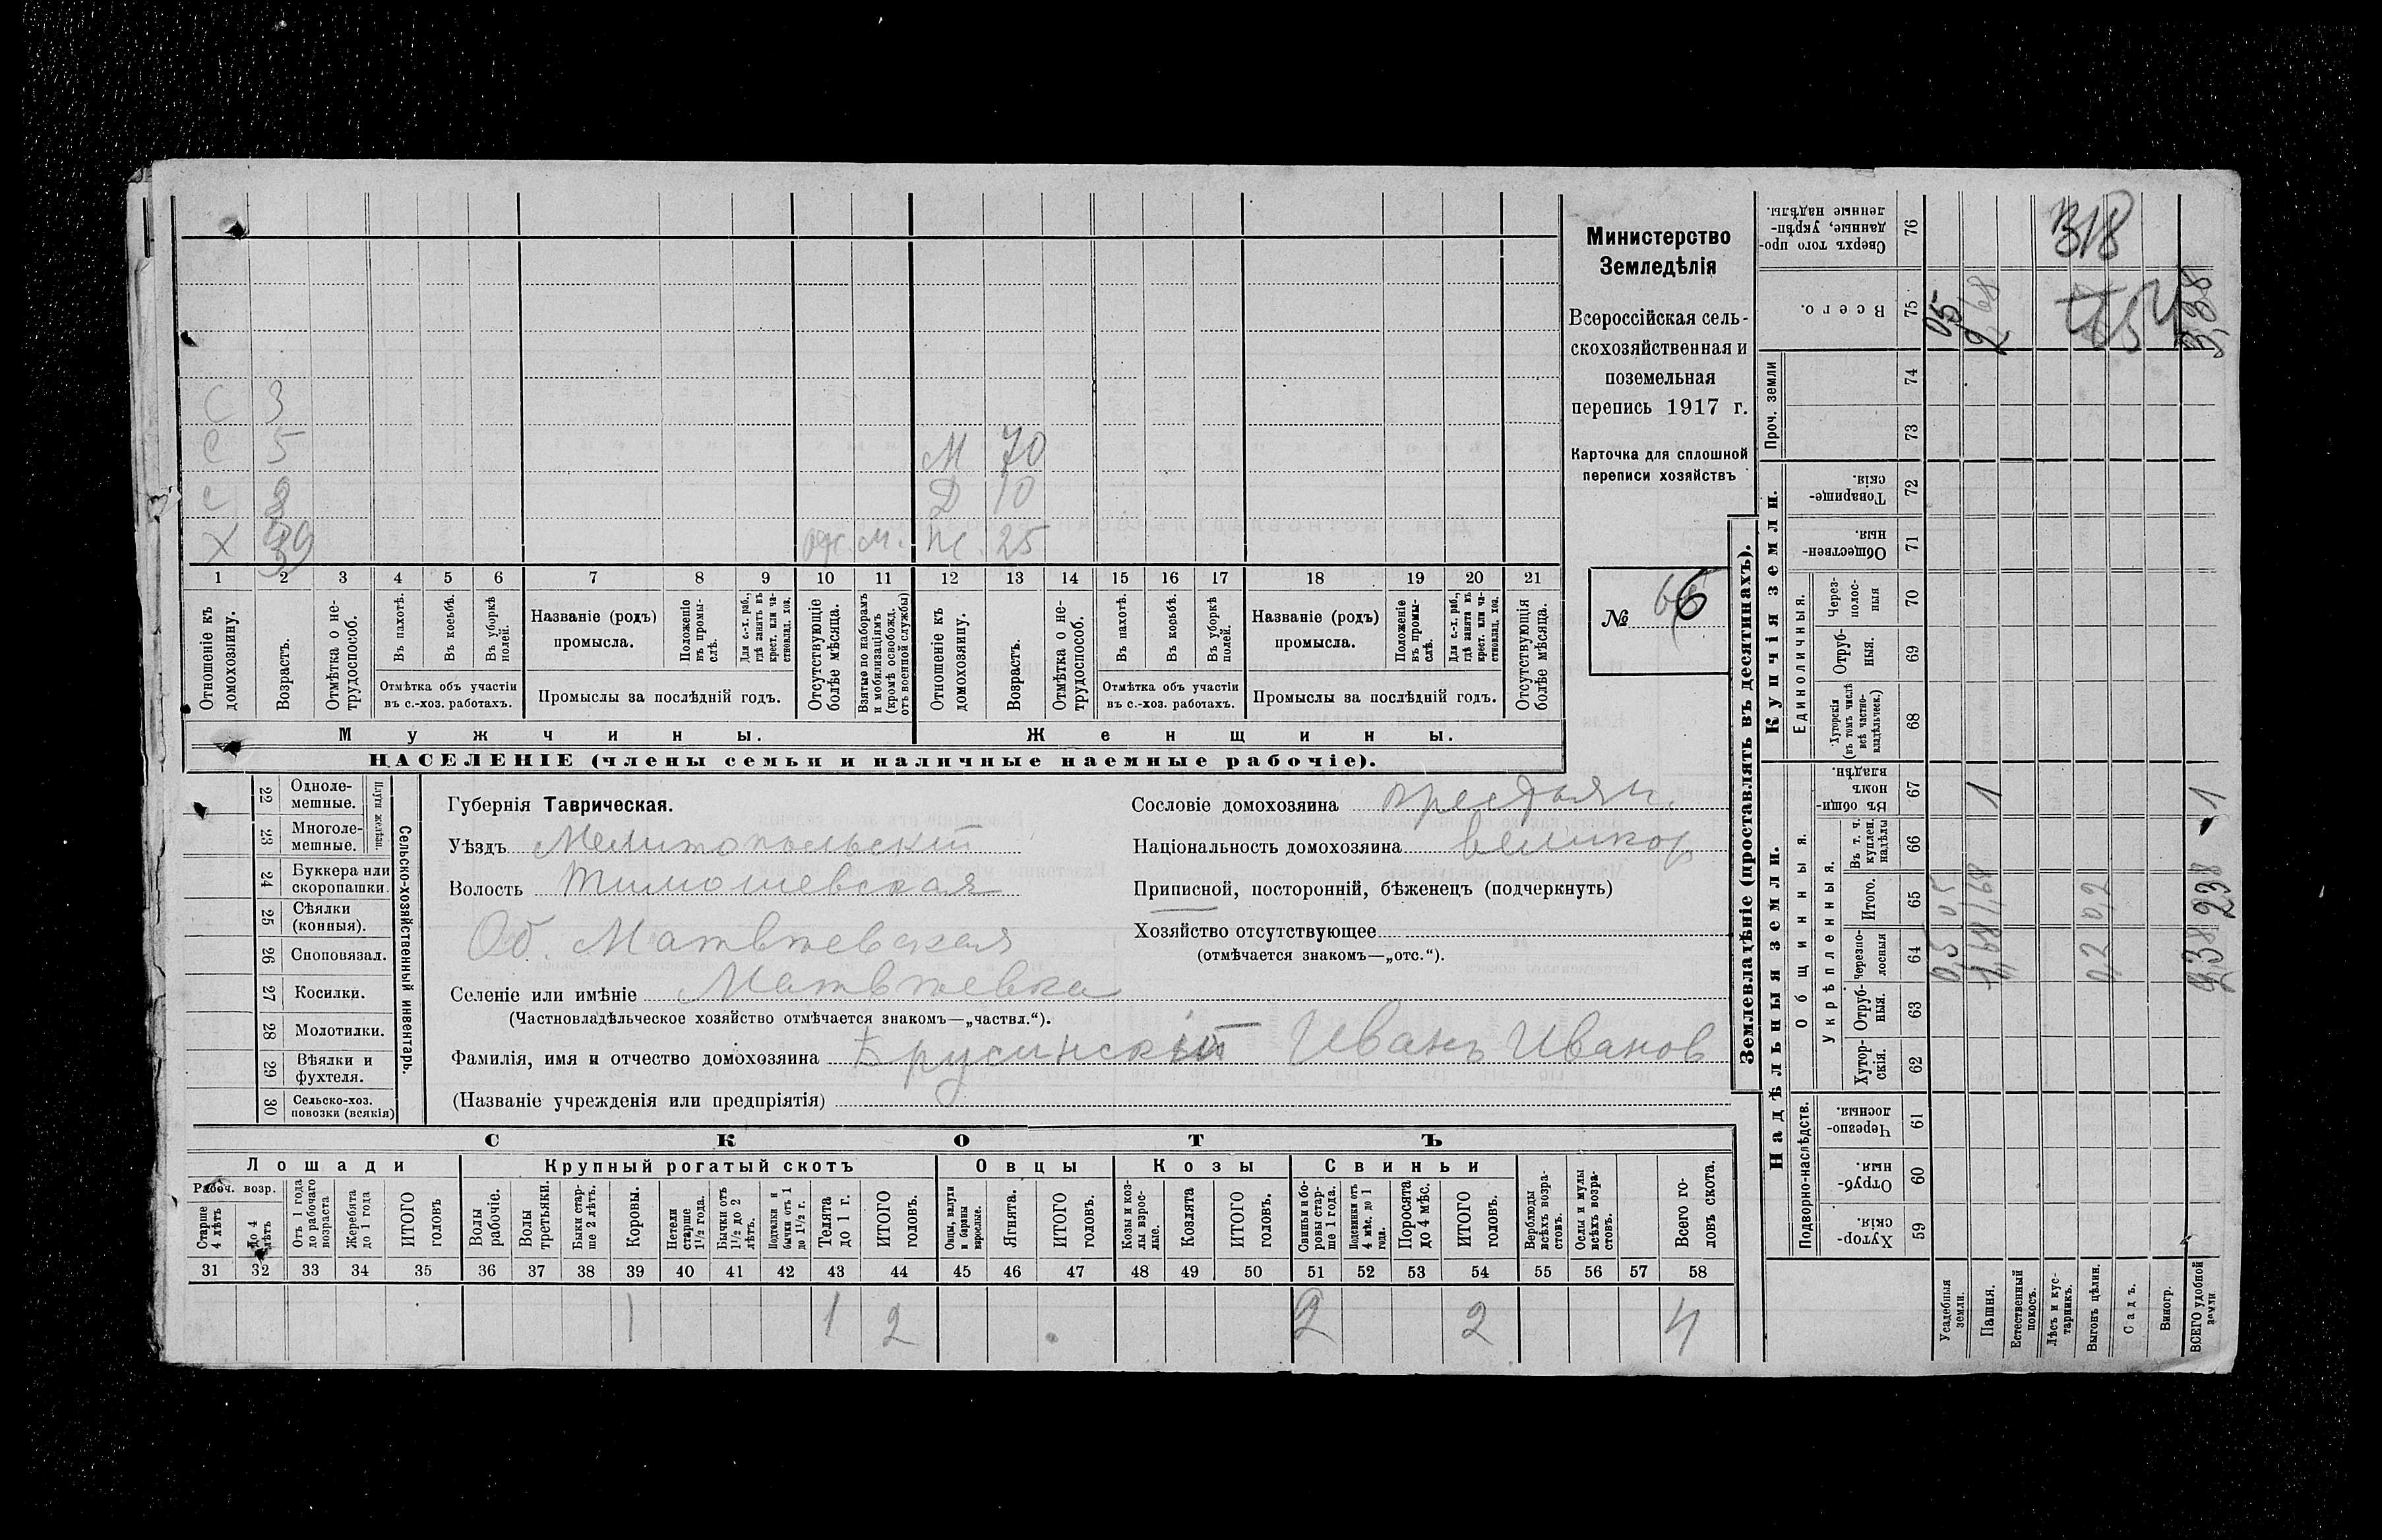 Министерство
Земледѣлія
Всероссійская сель-
скохозяйственная и
поземельная
перепись 1917 г.
Карточка для сплошной
переписи хозяйствъ
№ 66
С 3
С 5 М 70
с 8 Д 10
Х 39 отс. м. ж. 25
1 2 3 4 5 6 7 8 9 10 11 12 13 14 15 16 17 18 19 20 21
Отношеніе къ домохозяину.
Возрастъ.
Отмѣтка о не-трудоспособ.
Въ пахотѣ.
Въ косьбѣ.
Въ уборкѣ полей.
Отмѣтка объ участіи
въ с.-хоз. работахъ.
Названіе (родъ)
промысла.
Положеніе въ промы-слѣ.
Для с.-х. раб., гдѣ занятъ въ крест. или ча-стновлад. хоз.
Промыслы за послѣдній годъ.
Отсутствующіе болѣе мѣсяца.
Взятые по наборамъ и мобилизаціямъ (кромѣ освобожд. отъ военной службы)
Отношеніе къ домохозяину.
Возрастъ.
Отмѣтка о не-трудоспособ.
Въ пахотѣ.
Въ косьбѣ.
Въ уборкѣ полей.
Отмѣтка объ участіи
въ с.-хоз. работахъ.
Названіе (родъ)
промысла.
Положеніе въ промы-слѣ.
Для с.-х. раб., гдѣ занята въ крест. или ча-стновлад. хоз.
Промыслы за послѣдній годъ.
Отсутствующія болѣе мѣсяца.
Мужчины. Женщины.
НАСЕЛЕНІЕ (члены семьи и наличные наемные рабочіе).
Сельско-хозяйственный инвентарь.
Плуги желѣзн.
22 Одноле-мешные.
23 Многоле-мешные.
24 Буккера или скоропашки.
25 Сѣялки (конныя).
26 Сноповязал.
27 Косилки.
28 Молотилки.
29 Вѣялки и фухтеля.
30 Сельско-хоз. повозки (всякія)
Губернія Таврическая.
Уѣздъ Мелитопольскій
Волость Тимошевская
Об. Матвѣевская
Селеніе или имѣніе Матвѣевка
(Частновладѣльческое хозяйство отмѣчается знакомъ—„частвл.“).
Фамилія, имя и отчество домохозяина Брусинскій Иванъ Иванов
(Названіе учрежденія или предпріятія)
Сословіе домохозяина крестьян.
Національность домохозяина великор
Приписной, посторонній, бѣженецъ (подчеркнуть)
Хозяйство отсутствующее
(отмѣчается знакомъ—„отс.“).
СКОТЪ
Лошади Крупный рогатый скотъ Овцы Козы Свиньи
Рабоч. возр.
Старше 4 лѣтъ
до 4 лѣтъ
Отъ 1 года до рабочаго возраста
Жеребята до 1 года
ИТОГО головъ
Волы рабочіе.
Волы третьяки.
Быки стар-ше 2 лѣтъ.
Коровы.
Нетели старше 1½ года.
Бычки отъ 1½ до 2 лѣтъ.
Подтелки и бычки отъ 1 до 1½ г.
Телята до 1 г.
ИТОГО головъ.
Овцы, валухи и бараны взрослые.
Ягнята.
ИТОГО головъ.
Козы и коз-лы взрос-лые.
Козлята
ИТОГО головъ.
Свиньи и бо-ровы стар-ше 1 года.
Подсвинки отъ 4 мѣс. до 1 года.
Поросята до 4 мѣс.
ИТОГО головъ.
Верблюды всѣхъ возра-стовъ.
Ослы и мулы всѣхъ возра-стовъ.
Всего го-ловъ скота.
31 32 33 34 35 36 37 38 39 40 41 42 43 44 45 46 47 48 49 50 51 52 53 54 55 56 57 58
1 1 2 2 2 4
Землевладѣніе (проставлять въ десятинахъ).
Надѣльныя земли.
Купчія земли.
Проч. земли
Подворно-наслѣдств.
Общинныя.
Укрѣпленныя.
Единоличныя.
59 Хутор-скія.
60 Отруб-ныя.
61 Черезпо-лосныя.
62 Хутор-скія.
63 Отруб-ныя.
64 Черезпо-лосныя
65 Итого.
66 Въ т. ч. куплен. надѣлы
67 Въ общин-номъ владѣн.
68 Хуторскія (въ томъ числѣ всѣ частно-владѣльческ.)
69 Отруб-ныя.
70 Через-полос-ныя
71 Обществен-ныя
72 Товарище-скія.
73
74
75 Всего.
76 Сверхъ того про-данные, укрѣп-ленные надѣлы.
Усадебныя земли.
Пашня.
Естественный покосъ.
Лѣсъ и кус-тарникъ.
Выгонъ цѣлин.
Садъ.
Виногр.
ВСЕГО удобной земли
0,5 0,5 05
1,68 1,68 1 2,68
0,2 0,2
2,38 238 1 3,38
318